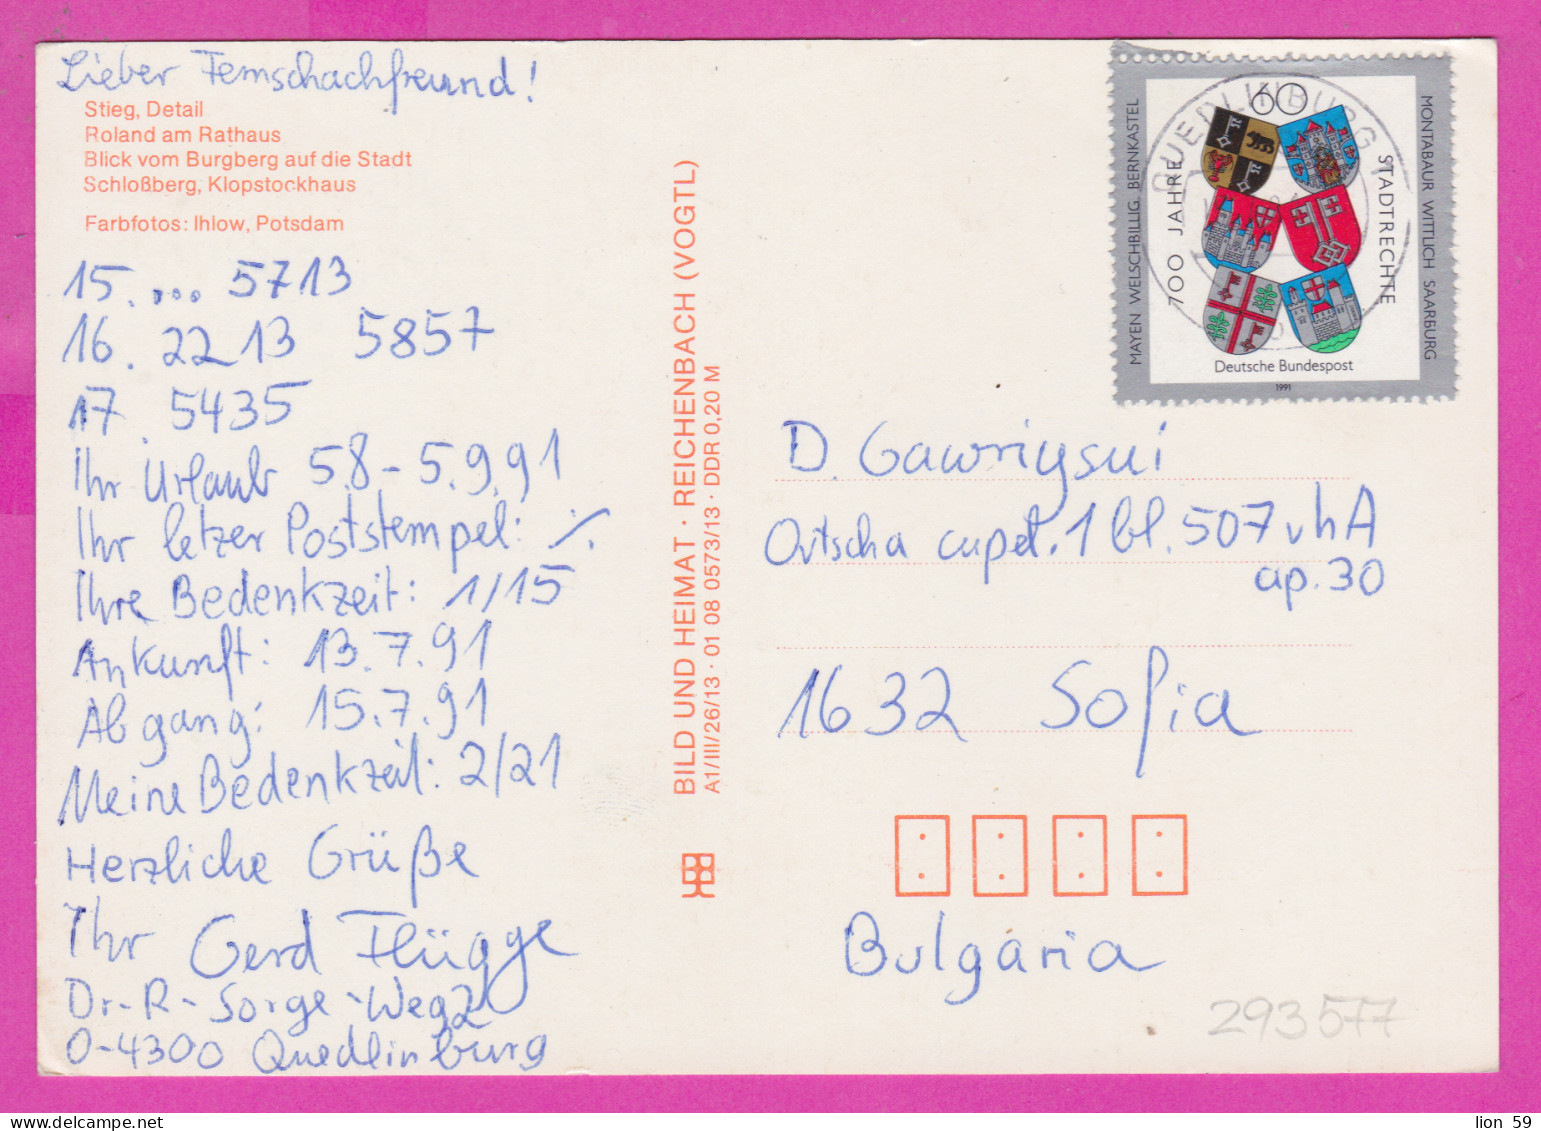 Lieber Fernschachfreund!
Stieg, Detail
Roland am Rathaus
Blick vom Burgberg auf die Stadt
Schloßberg, Klopstockhaus
Farbfotos: Ihlow, Potsdam
15. ... 5713
16. 2213 5857
17. 5435
Ihr Urlaub 5.8-5.9.91
Ihr letzer Poststempel: ·/.
Ihre Bedenkzeit: 1/15
Ankunft: 13.7.91
Abgang: 15.7.91
Meine Bedenkzeit: 2/21
Herzliche Grüße
Ihr Gerd Flügge
Dr.-R.-Sorge-Weg 2
O-4300 Quedlinburg
BILD UND HEIMAT · REICHENBACH (VOGTL)
A1/III/26/13 · 01 08 0573/13 · DDR 0,20 M
MAYEN WELSCHBILLIG BERNKASTEL
MONTABAUR WITTLICH SAARBURG
700 JAHRE
STADTRECHTE
60
QUEDLINBURG
Deutsche Bundespost
1991
D. Gawriysui
Ovtscha cupel. 1 bl. 507 vh A
ap. 30
1632 Sofia
Bulgaria
293577
lion 59